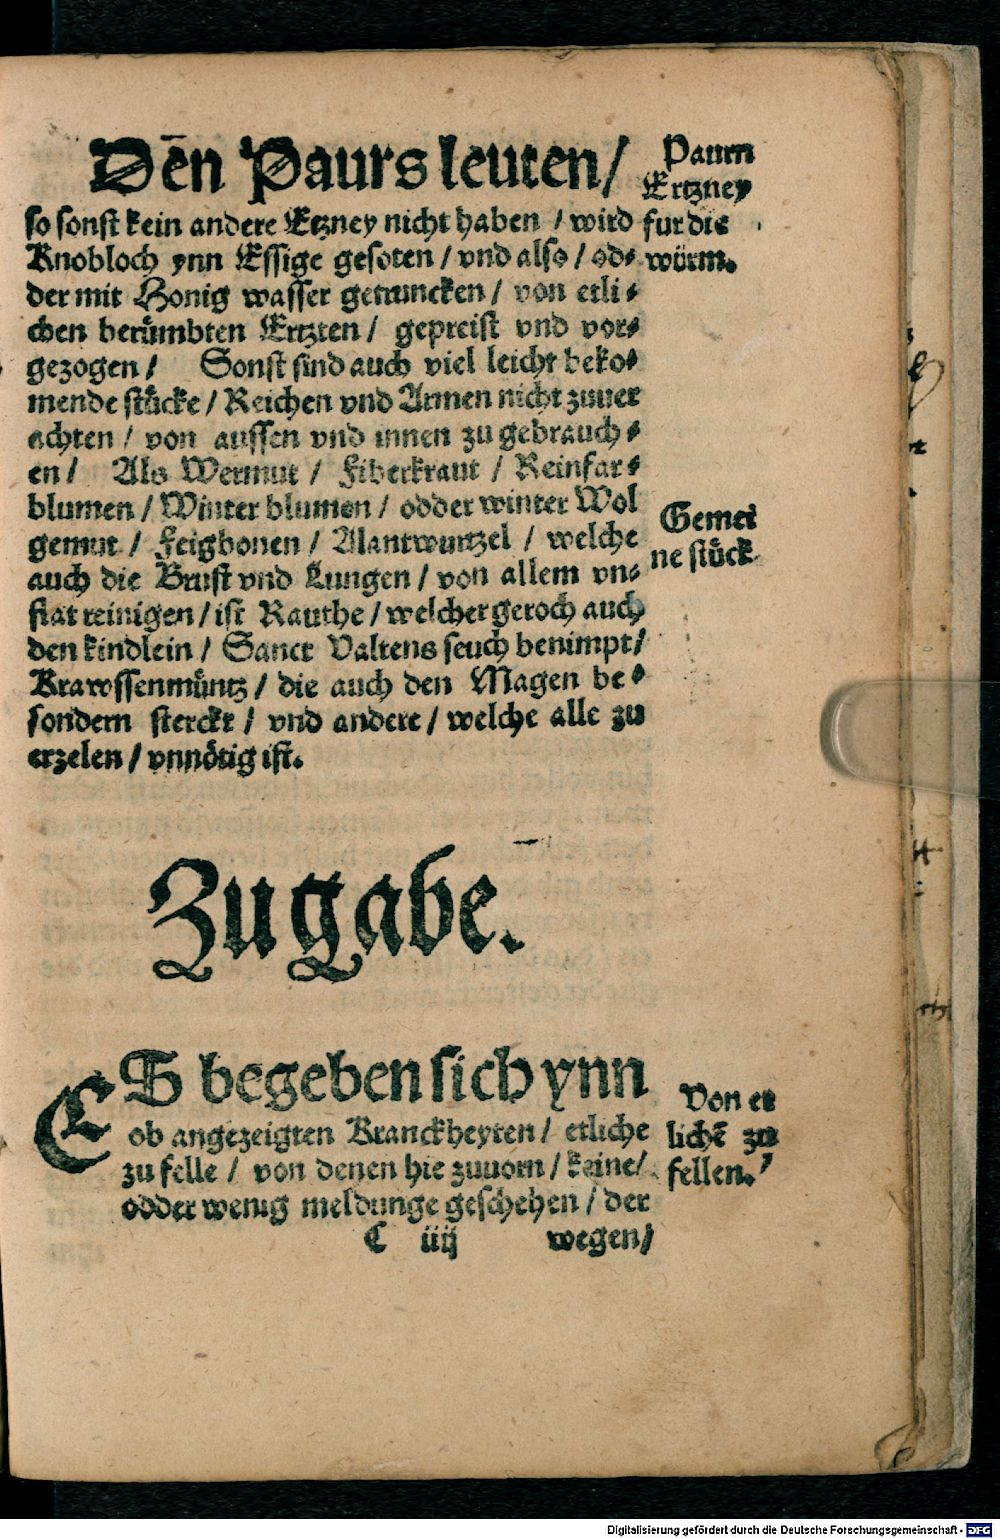 Dēn Paurs leuten/
so sonst kein andere Ertzney nicht haben / wird
Knobloch ynn Essige gesoten / vnd also / od⸗
der mit Honig wasser getruncken / von etli⸗
chen berümbten Ertzten / gepreist vnd vor⸗
gezogen / Sonst sind auch viel leicht beko⸗
mende stücke / Reichen vnd Armen nicht zuuer
achten / von aussen vnd innen zu gebrauch⸗
en / Als Wermut / Fiberkraut / Reinfar⸗
blumen / Winter blumen / odder winter Wol
gemut / Feigbonen / Alantwurtzel / welche
auch die Brust vnd Lungen / von allem vn⸗
flat reinigen / ist Rauthe / welcher geroch auch
den kindlein / Sanct Valtens seuch benimpt/
Krawssenmüntz / die auch den Magen be⸗
sondern sterckt / vnd andere / welche alle zu
erzelen / vnnötig ist.
Paurn
Ertzney
fur die
würm.
Gemei
ne stück
Zugabe.
ES begeben sich ynn
ob angezeigten Kranckheyten / etliche
zu felle / von denen hie zuuorn / keine/
odder wenig meldunge geschehen / der
Von et
lichē zu
fellen.
C iiij wegen/
Digitalisierung gefördert durch die Deutsche Forschungsgemeinschaft - DFG